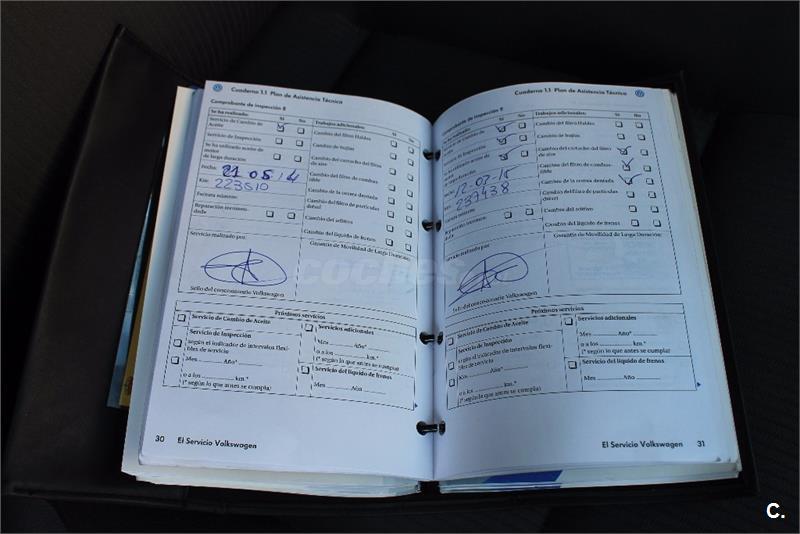 Cuaderno 1.1 Plan de Asistencia Técnica
Comprobante de inspección 8
Se ha realizado: Sí No
Servicio de Cambio de
Aceite
Servicio de Inspección
Se ha utilizado aceite de
motor
de larga duración
Fecha: 21 05 14
Km: 223510
Factura número:
Reparación recomen-
dada
Trabajos adicionales: Sí No
Cambio del filtro Haldex
Cambio de bujías
Cambio del cartucho del filtro
de aire
Cambio del filtro de combus-
tible
Cambio de la correa dentada
Cambio del filtro de partículas
diésel
Cambio del aditivo
Cambio del líquido de frenos
Servicio realizado por:
Garantía de Movilidad de Larga Duración:
Sello del concesionario Volkswagen
Próximos servicios
Servicio de Cambio de Aceite
Servicio de Inspección
según el indicador de intervalos flexi-
bles de servicio
Mes Año*
o a los km.*
(* según lo que antes se cumpla)
Servicios adicionales
Mes Año*
o a los km.*
(* según lo que antes se cumpla)
Servicio del líquido de frenos
Mes Año
30 El Servicio Volkswagen
Cuaderno 1.1 Plan de Asistencia Técnica
Comprobante de inspección 9
realizado: Sí No
de Cambio de
de Inspección
aceite de
duración
12-02-15
237938
número:
Reparación recomen-
dada
Trabajos adicionales: Sí No
Cambio del filtro Haldex
Cambio de bujías
Cambio del cartucho del filtro
de aire
Cambio del filtro de combus-
tible
Cambio de la correa dentada
Cambio del filtro de partículas
diésel
Cambio del aditivo
Cambio del líquido de frenos
Servicio realizado por:
Garantía de Movilidad de Larga Duración:
Sello del concesionario Volkswagen
Próximos servicios
Servicio de Cambio de Aceite
Servicio de Inspección
según el indicador de intervalos flexi-
bles de servicio
Mes Año*
o a los km.*
(* según lo que antes se cumpla)
Servicios adicionales
Mes Año*
o a los km.*
(* según lo que antes se cumpla)
Servicio del líquido de frenos
Mes Año
El Servicio Volkswagen 31
coches
C.